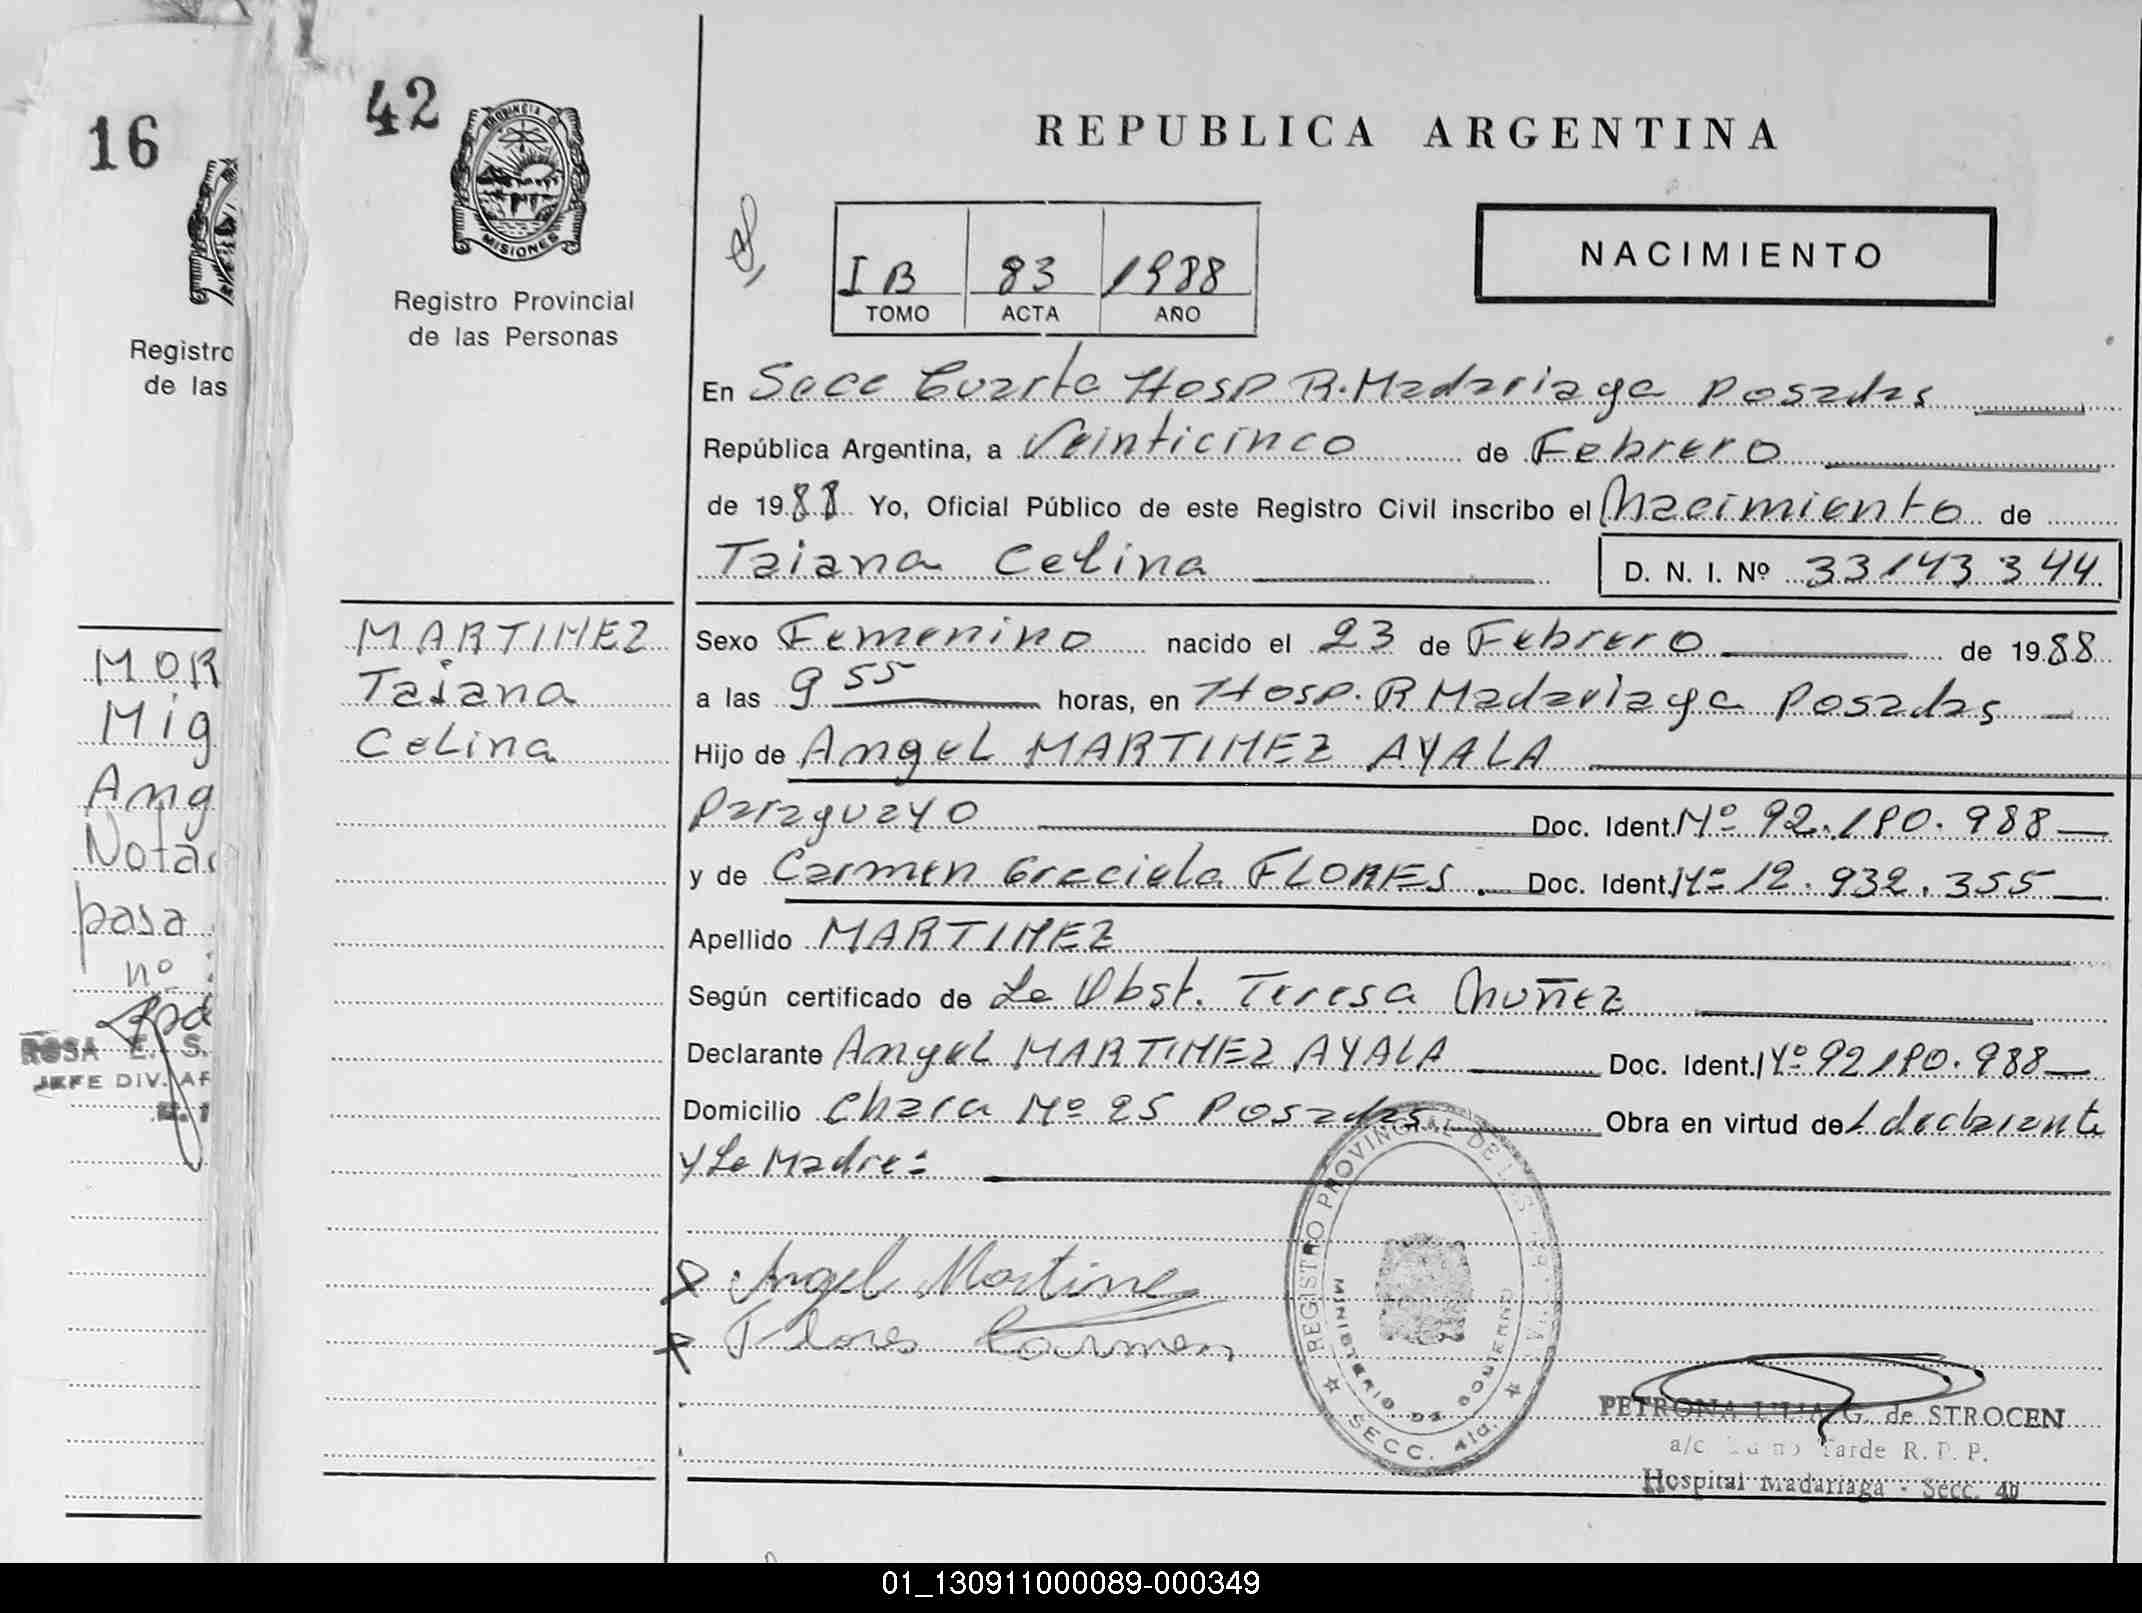 16
Registro
de las
MOR
Mig
Ang
Nota
pasa
nº
ROSA E. S.
JEFE DIV. AF
42
PROVINCIA DE
MISIONES
Registro Provincial
de las Personas
MARTINEZ
Taiana
Celina
REPUBLICA ARGENTINA
NACIMIENTO
I B 83 1988
TOMO ACTA AÑO
En Secc Cuarta Hosp R. Madariaga Posadas
República Argentina, a Veinticinco de Febrero
de 1988 Yo, Oficial Público de este Registro Civil inscribo el Nacimiento de
Taiana Celina D. N. I. Nº 33143344
Sexo Femenino nacido el 23 de Febrero de 1988
a las 9 55 horas, en Hosp. R Madariaga Posadas
Hijo de Angel MARTINEZ AYALA
Paraguayo Doc. Ident. Nº 92.190.988
y de Carmen Graciela FLORES. Doc. Ident. Nº 12.932.355
Apellido MARTINEZ
Según certificado de La Obst. Teresa Nuñez
Declarante Angel MARTINEZ AYALA Doc. Ident. Nº 92190.988
Domicilio Chacra Nº 25 Posadas Obra en virtud del declarante
y La Madre:
Angel Martine
Flores Carmen
REGISTRO PROVINCIAL DE LAS PERSONAS
MINISTERIO DE GOBIERNO
SECC. 4ta.
PETRONA G. de STROCEN
a/c Tarde R. P. P.
Hospital Madariaga - Secc. 4ta
01_130911000089-000349